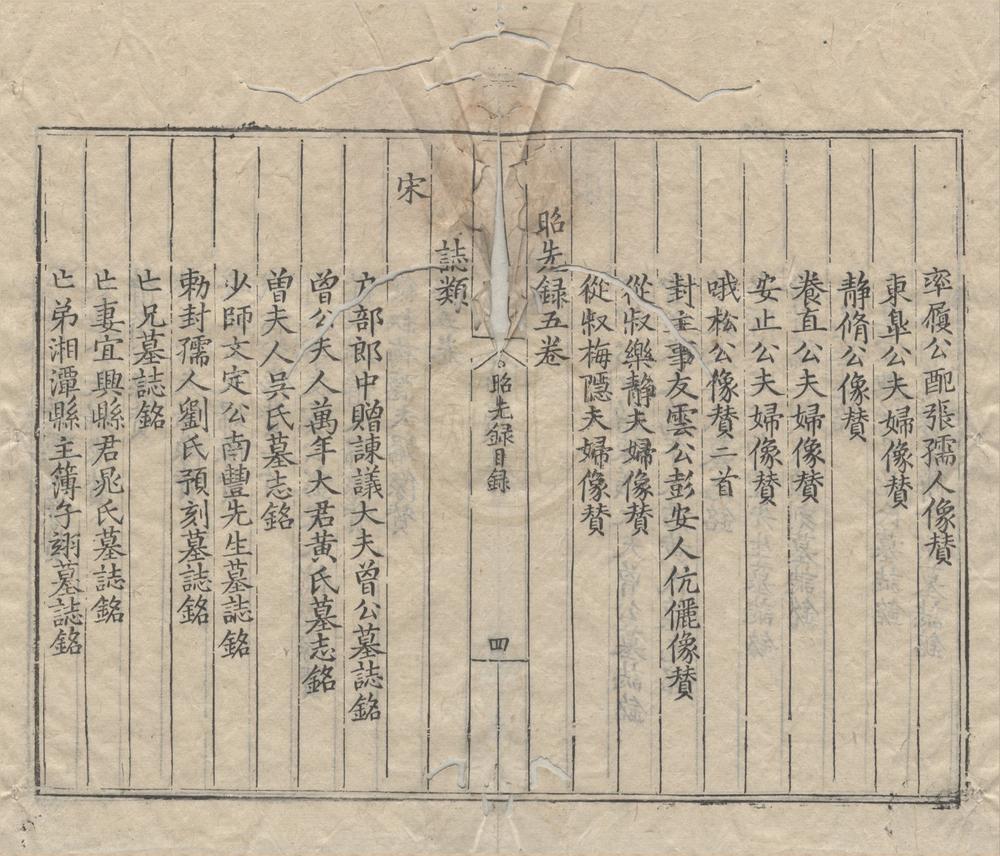 率履公配張孺人像賛
東臯公夫婦像賛
靜脩公像賛
養直公夫婦像賛
安止公夫婦像賛
哦松公像賛二首
封主事友雲公彭安人伉儷像賛
從叔樂靜夫婦像賛
從叔梅隱夫婦像賛
昭先録五卷
昭先録目録
四
誌類
宋
户部郎中贈諫議大夫曾公墓誌銘
曾公夫人萬年大君黃氏墓志銘
曽夫人吳氏墓志銘
少師文定公南豐先生墓誌銘
勅封孺人劉氏預刻墓誌銘
亡兄墓誌銘
亡妻宜興縣君晁氏墓誌銘
亡弟湘潭縣主簿子翊墓誌銘